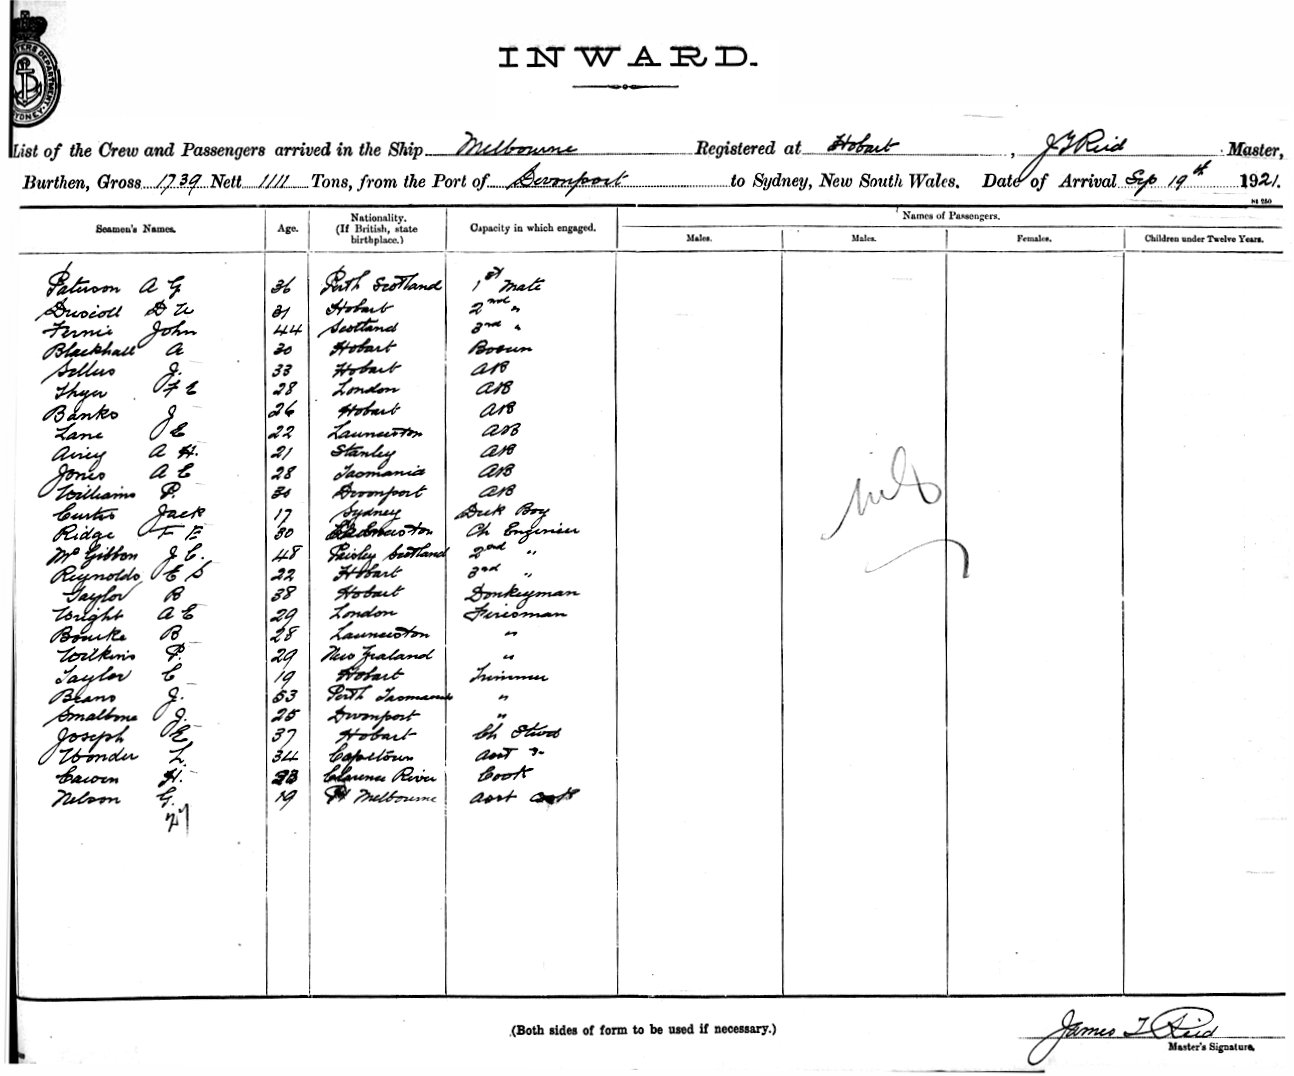 INWARD.
List of the Crew and Passengers arrived in the Ship Melbourne Registered at Hobart, J T Reid Master,
Burthen, Gross 1739 Nett 1111 Tons, from the Port of Devonport to Sydney, New South Wales. Date of Arrival Sep 19th 1921.
Names of Passengers.
Seamen's Names. Age. Nationality. (If British, state birthplace.) Capacity in which engaged. Males. Males. Females. Children under Twelve Years.
Paterson A G 36 Perth Scotland 1st Mate
Driscoll D 31 Hobart 2nd "
Fernie John 44 Scotland 3rd "
Blackhall A 30 Hobart Bosun
J. 33 Hobart AB
Thyer F E 28 London AB
Banks J 26 Hobart AB
Lane E 22 Launceston AB
Airey A H. 21 Stanley AB
Jones A E 28 Tasmania AB
Williams P. 30 Devonport AB
Curtis Jack 17 Sydney Deck Boy
Ridge F E 30 Launceston Ch Engineer
McGibbon J C. 48 Paisley Scotland 2nd "
Reynolds E S 22 Hobart 3rd "
Taylor B 38 Hobart Donkeyman
Wright A E 29 London Firesman
Bourke B 28 Launceston "
Wilkins P. 29 New Zealand "
Taylor C 19 Hobart Trimmer
Beans J. 53 Perth Tasmania "
Smalbone J. 25 Devonport "
Joseph E 37 Hobart Ch Stwd
Wonder L. 34 Capetown Asst "
H. 23 Clarence River Cook
Nelson G. 19 Pt Melbourne Asst cook
27
nil
(Both sides of form to be used if necessary.)
James T Reid
Master's Signature.